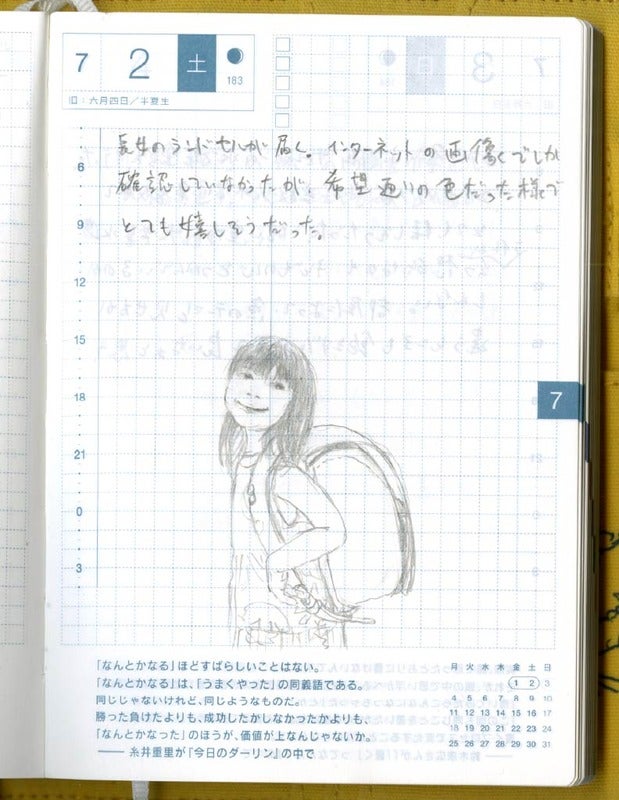 7 2 土
183
旧:六月四日/半夏生
長女のランドセルが届く。インターネットの画像くでしか
確認していなかったが、希望通りの色だった様で
とても嬉しそうだった。
6
9
12
15
18
21
0
3
7
「なんとかなる」ほどすばらしいことはない。
「なんとかなる」は、「うまくやった」の同義語である。
同じじゃないけれど、同じようなものだ。
勝った負けたよりも、成功したかしなかったかよりも、
「なんとかなった」のほうが、価値が上なんじゃないか。
―― 糸井重里が『今日のダーリン』の中で
月 火 水 木 金 土 日
1 2 3
4 5 6 7 8 9 10
11 12 13 14 15 16 17
18 19 20 21 22 23 24
25 26 27 28 29 30 31